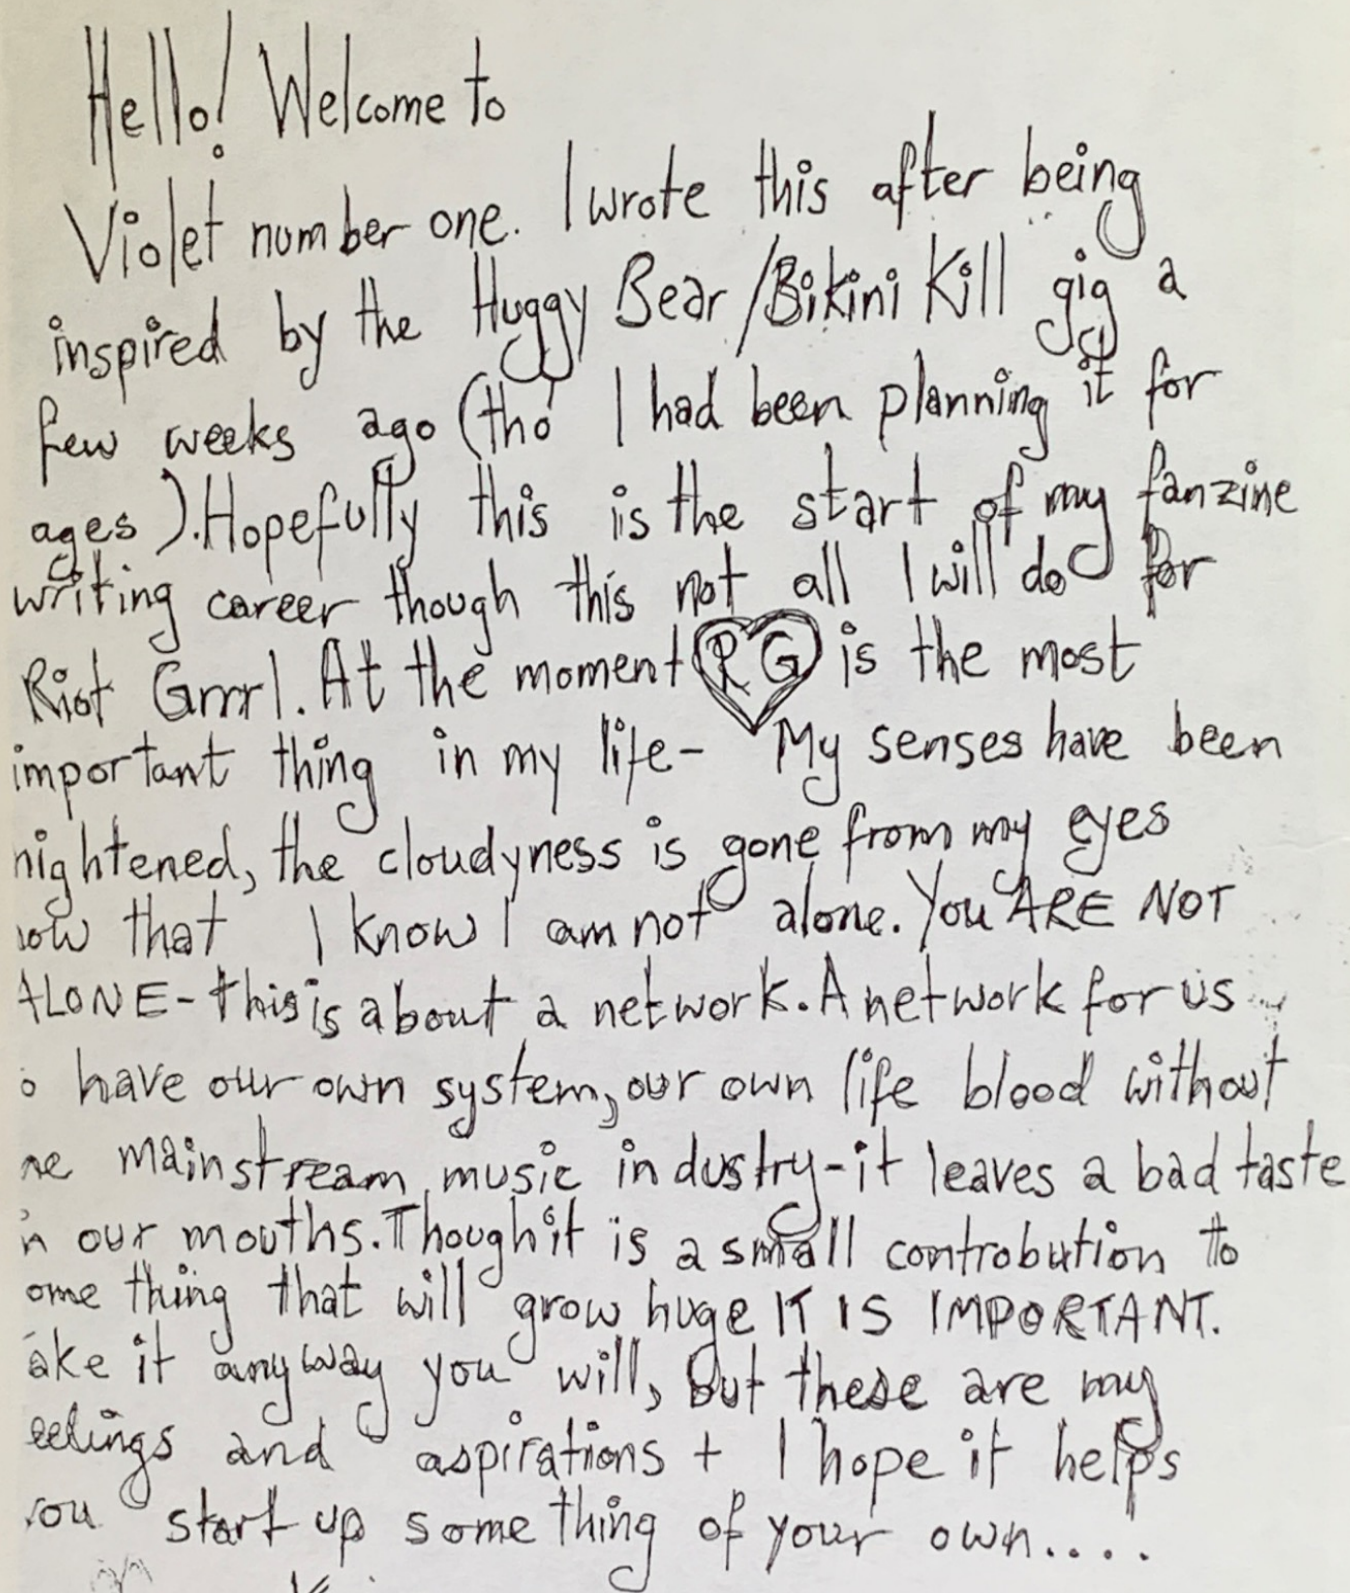 Hello! Welcome to
Violet number one. I wrote this after being
inspired by the Huggy Bear/Bikini Kill gig a
few weeks ago (tho' I had been planning it for
ages). Hopefully this is the start of my fanzine
writing career though this not all I will do for
Riot Grrrl. At the moment RG is the most
important thing in my life- My senses have been
hightened, the cloudyness is gone from my eyes
now that I know I am not alone. You ARE NOT
ALONE - this is about a network. A network for us
o have our own system, our own life blood without
he mainstream music industry - it leaves a bad taste
in our mouths. Though it is a small controbution to
ome thing that will grow huge IT IS IMPORTANT.
ake it anyway you will, but these are my
eelings and aspirations + I hope it helps
you start up some thing of your own....